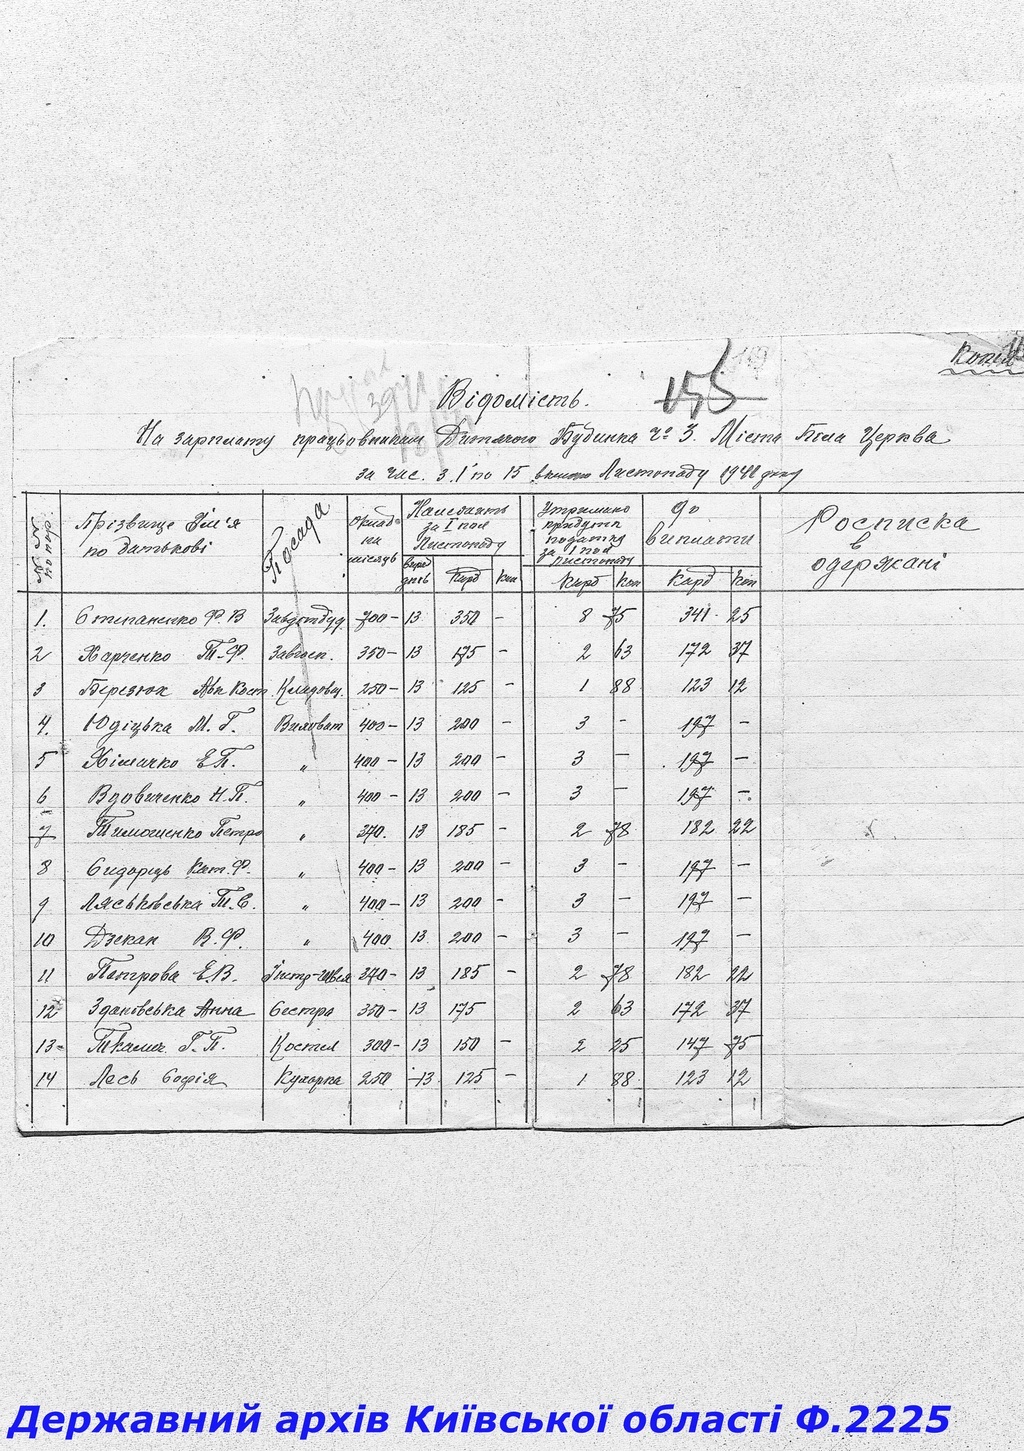 Копія
155
Відомість.
На зарплату працьовникам Дитячого Будинка Ч: 3. Міста Біла Церква
за час. з 1 по 15 Листопаду 1941 року
Прізвище Ім'я по батькові Посада оклад на місяць Належить за I пол Листопаду Утримано прибутк податку за I пол листопаду До виплати Росписка в одержані
Карб Коп Карб Коп Карб Коп
1. Степаненко Ф В Завдетбуд 700 - 13 350 - 8 75 341 25
2 Харченко Т. Ф. Завгосп. 350 - 13 175 - 2 63 172 37
3 Березюк Кост. Кладовщ. 250 - 13 125 - 1 88 123 12
4. Юдіцька М. Г. Виховат 400 - 13 200 - 3 - 197 -
5 Е. П. " 400 - 13 200 - 3 - 197 -
6 Вдовиченко Н. П. " 400 - 13 200 - 3 - 197 -
7 Тимошенко Петро " 370. 13 185 - 2 78 182 22
8 Сидорець Кат. Ф. " 400 - 13 200 - 3 - 197 -
9 Ляськовська Т. С. " 400 - 13 200 - 3 - 197 -
10 Декан В. Ф. " 400 13 200 - 3 - 197 -
11 Петрова Е. В. Інстр-швея 370 - 13 185 - 2 78 182 22
12 Здановська Анна Сестра 350 - 13 175 2 63 172 37
13 Ткалич Г. П. Костел 300 - 13 150 - 2 25 147 75
14 Лесь Софія Кухорка 250 - 13 125 - 1 88 123 12
Державний архів Київської області Ф.2225